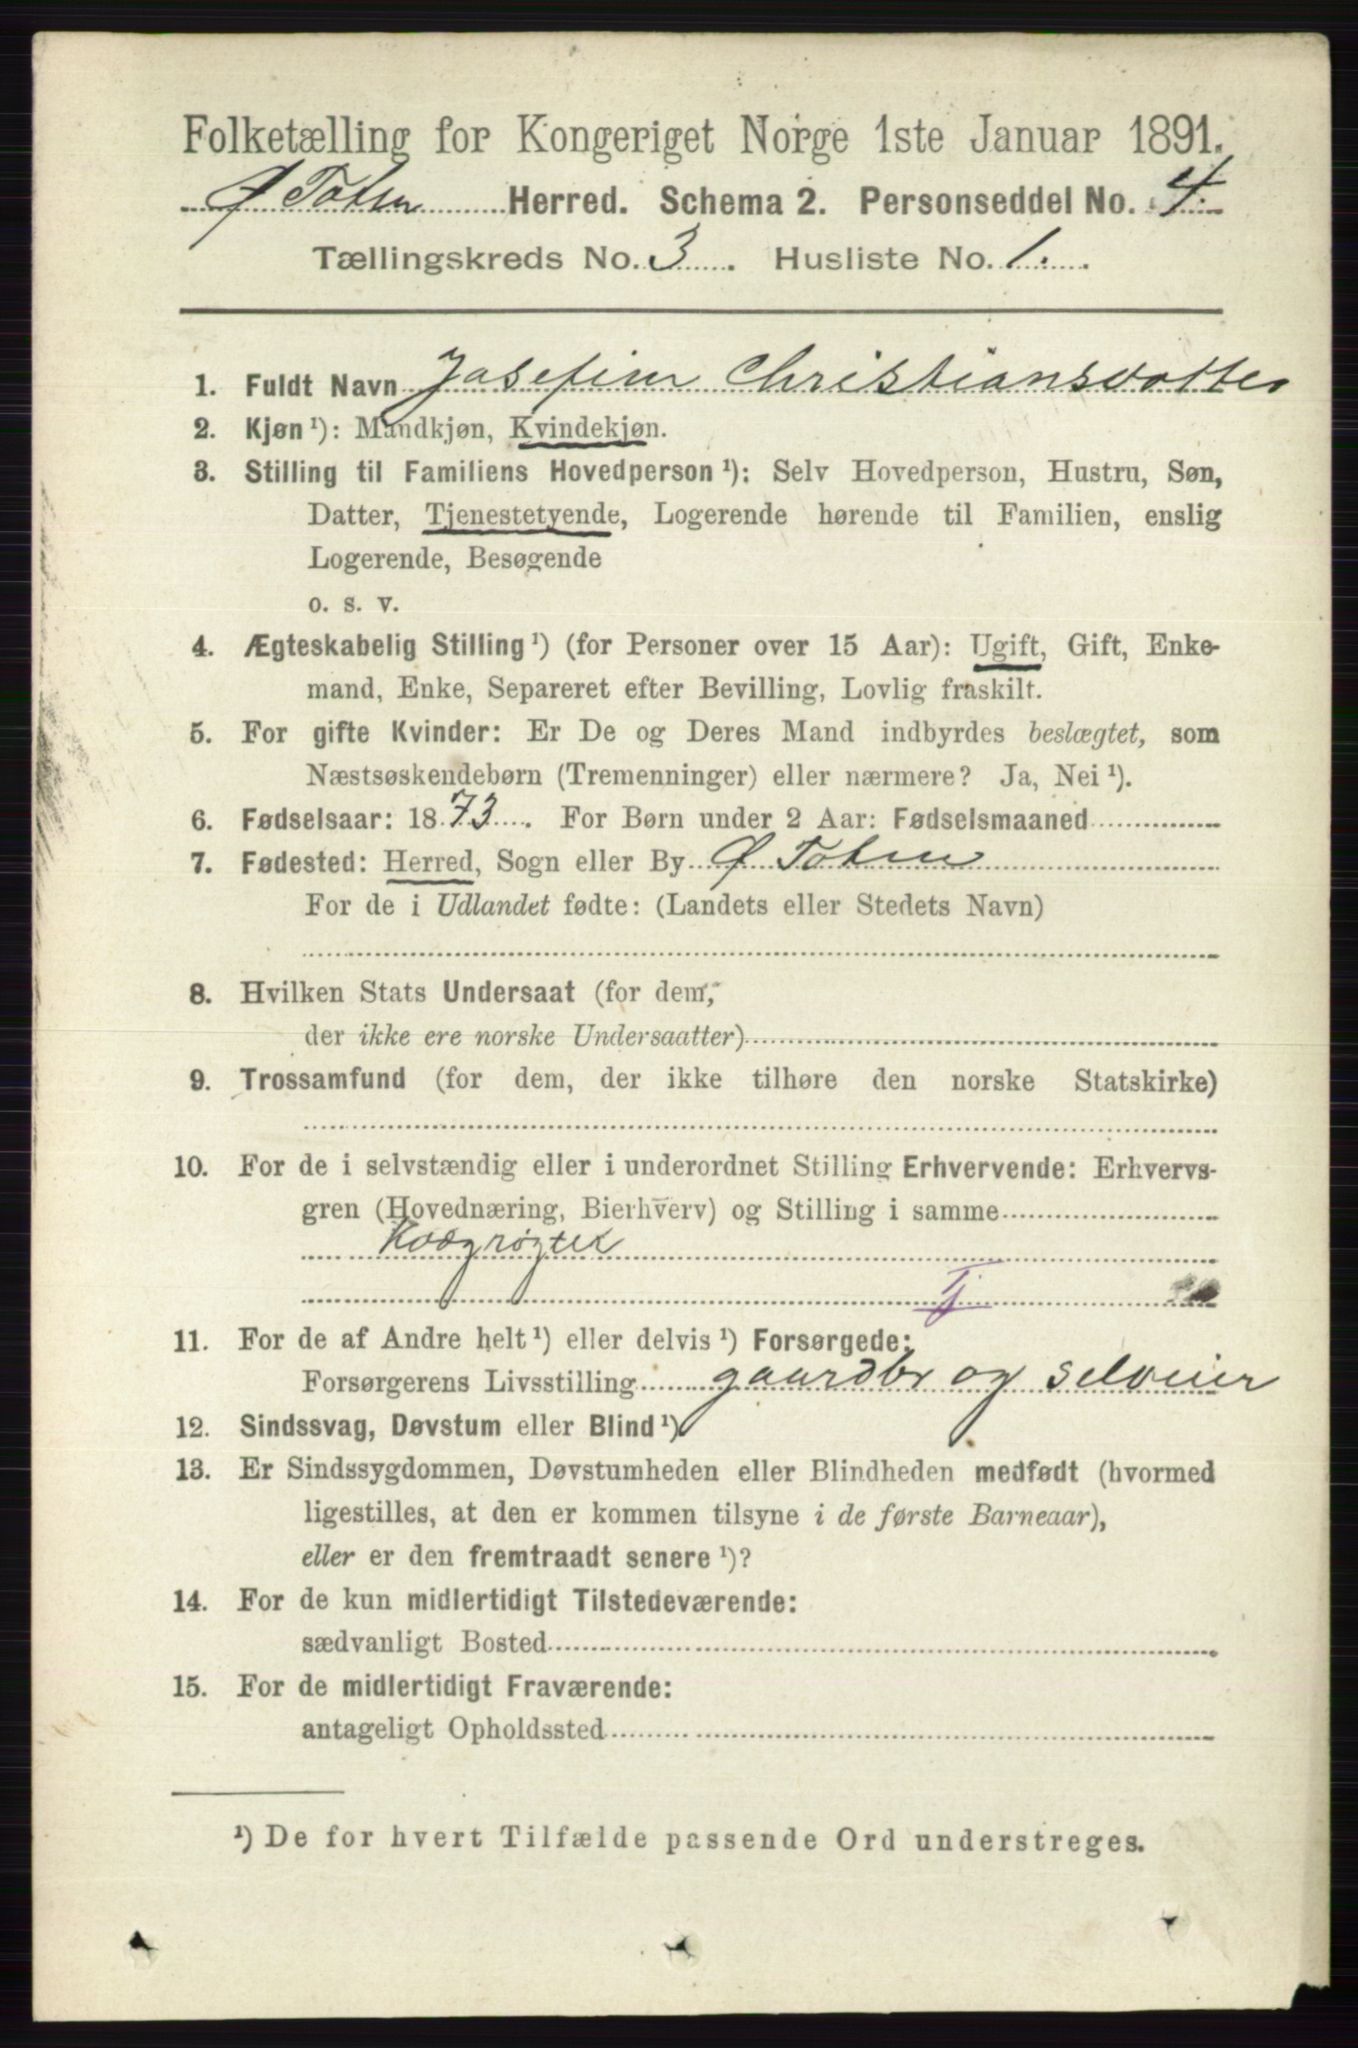 Folketælling for Kongeriget Norge 1ste Januar 1891.
Ø Toten Herred. Schema 2. Personseddel No. 4.
Tællingskreds No. 3. Husliste No. 1.
1. Fuldt Navn Josefine Christiansdotter
2. Kjøn ¹): Mandkjøn, Kvindekjøn.
3. Stilling til Familiens Hovedperson ¹): Selv Hovedperson, Hustru, Søn,
Datter, Tjenestetyende, Logerende hørende til Familien, enslig
Logerende, Besøgende
o. s. v.
4. Ægteskabelig Stilling ¹) (for Personer over 15 Aar): Ugift, Gift, Enke-
mand, Enke, Separeret efter Bevilling, Lovlig fraskilt.
5. For gifte Kvinder: Er De og Deres Mand indbyrdes beslægtet, som
Næstsøskendebørn (Tremenninger) eller nærmere? Ja, Nei ¹).
6. Fødselsaar: 1873. For Børn under 2 Aar: Fødselsmaaned
7. Fødested: Herred, Sogn eller By Ø Toten
For de i Udlandet fødte: (Landets eller Stedets Navn)
8. Hvilken Stats Undersaat (for dem,
der ikke ere norske Undersaatter)
9. Trossamfund (for dem, der ikke tilhøre den norske Statskirke)
10. For de i selvstændig eller i underordnet Stilling Erhvervende: Erhvervs-
gren (Hovednæring, Bierhverv) og Stilling i samme
Kvægrøgter
Tj
11. For de af Andre helt ¹) eller delvis ¹) Forsørgede:
Forsørgerens Livsstilling gaardbr og selveier
12. Sindssvag, Døvstum eller Blind ¹)
13. Er Sindssygdommen, Døvstumheden eller Blindheden medfødt (hvormed
ligestilles, at den er kommen tilsyne i de første Barneaar),
eller er den fremtraadt senere ¹)?
14. For de kun midlertidigt Tilstedeværende:
sædvanligt Bosted
15. For de midlertidigt Fraværende:
antageligt Opholdssted
¹) De for hvert Tilfælde passende Ord understreges.